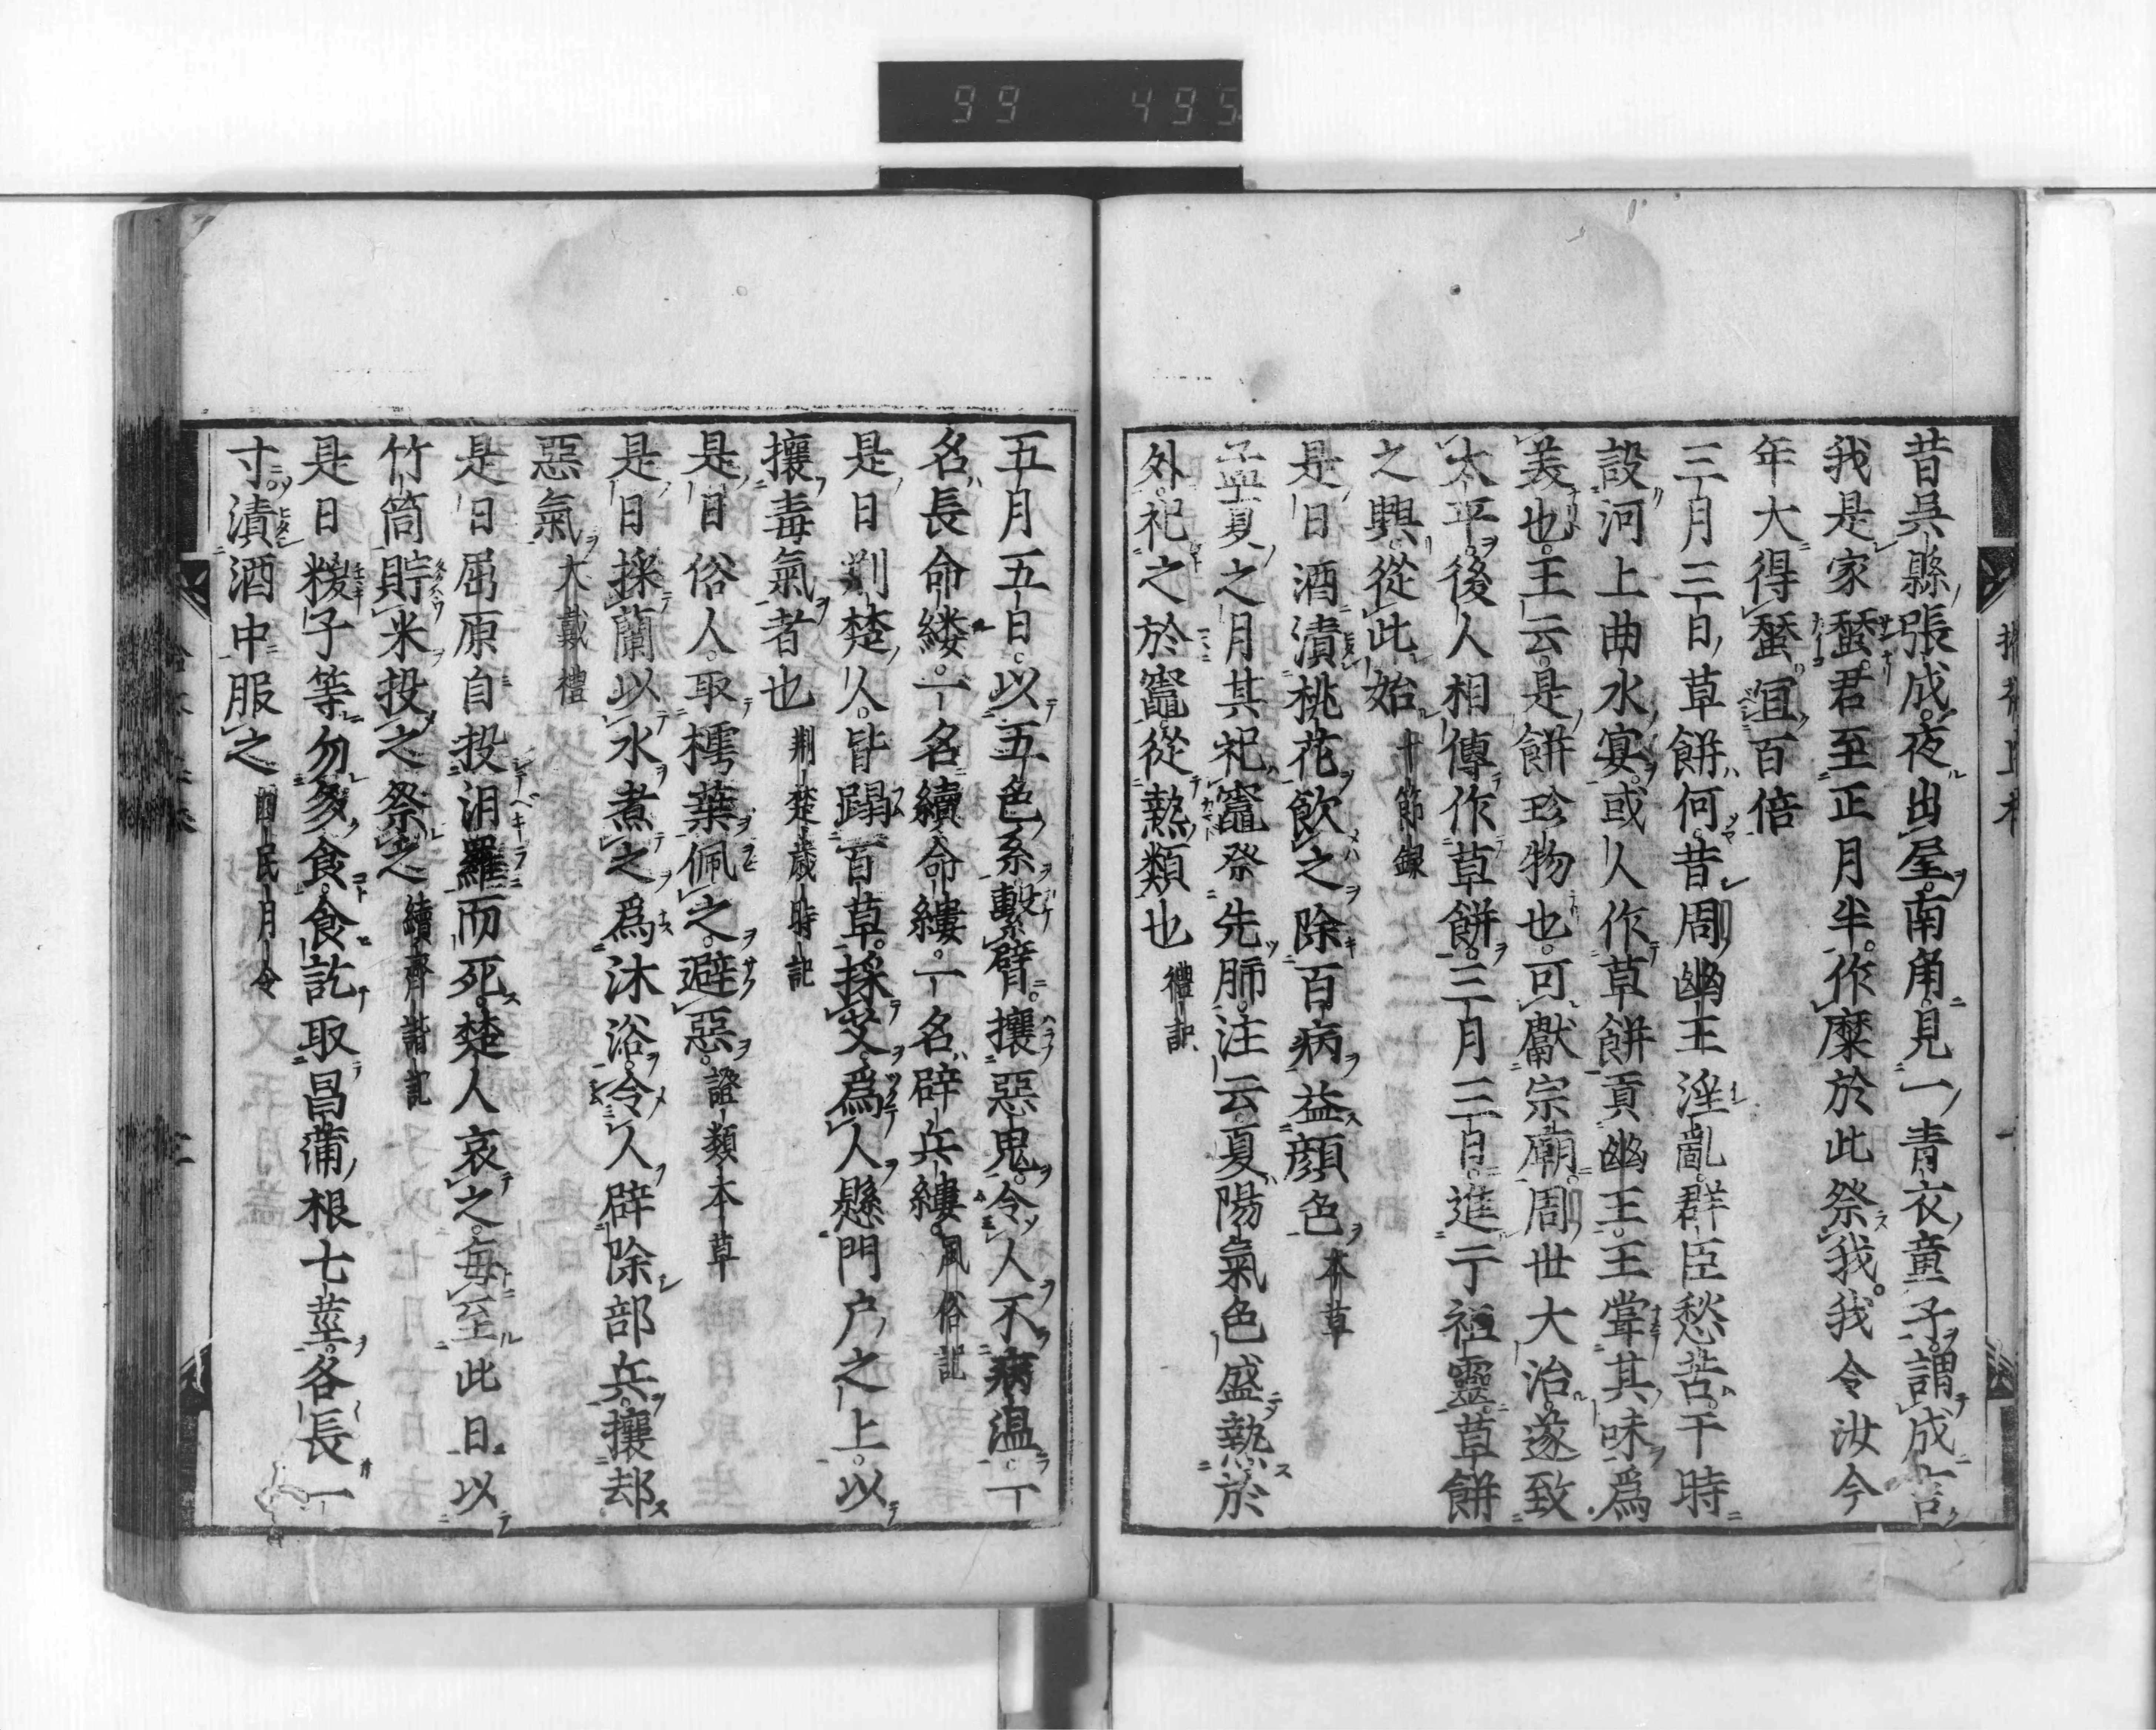 99 495
昔吳縣張成夜出屋南角見一青衣童子謂成言
我是家蠶君至正月半作糜於此祭我我令汝今
年大得蠶宜百倍
三月三日草餅何昔周幽王淫亂群臣愁苦于時
設河上曲水宴或人作草餅貢幽王王甞其味爲
美也王云是餅珍物也可獻宗廟周世大治遂致
太平後人相傳作草餅三月三日進于祖靈草餅
之興從此始 十節録
是日酒漬桃花飲之除百病益顔色 本草
孟夏之月其祀竈祭先肺注云夏陽氣色盛熱於
外祀之於竈從熱類也 禮記
五月五日以五色糸繫臂攘惡鬼令人不病温一
名長命縷一名續命縷一名辟兵縷 風俗記
是日荊楚人皆蹋百草採艾爲人懸門戸之上以
攘毒氣者也 荊楚歳時記
是日俗人取樗葉佩之避惡 證類本草
是日採蘭以水煮之爲沐浴令人辟除部兵攘却
惡氣 大戴禮
是日屈原自投汨羅而死楚人哀之毎至此日以
竹筒貯米投之祭之 續齊諧記
是日糉子等勿多食食訖取昌蒲根七莖各長一
寸漬酒中服之 四民月令